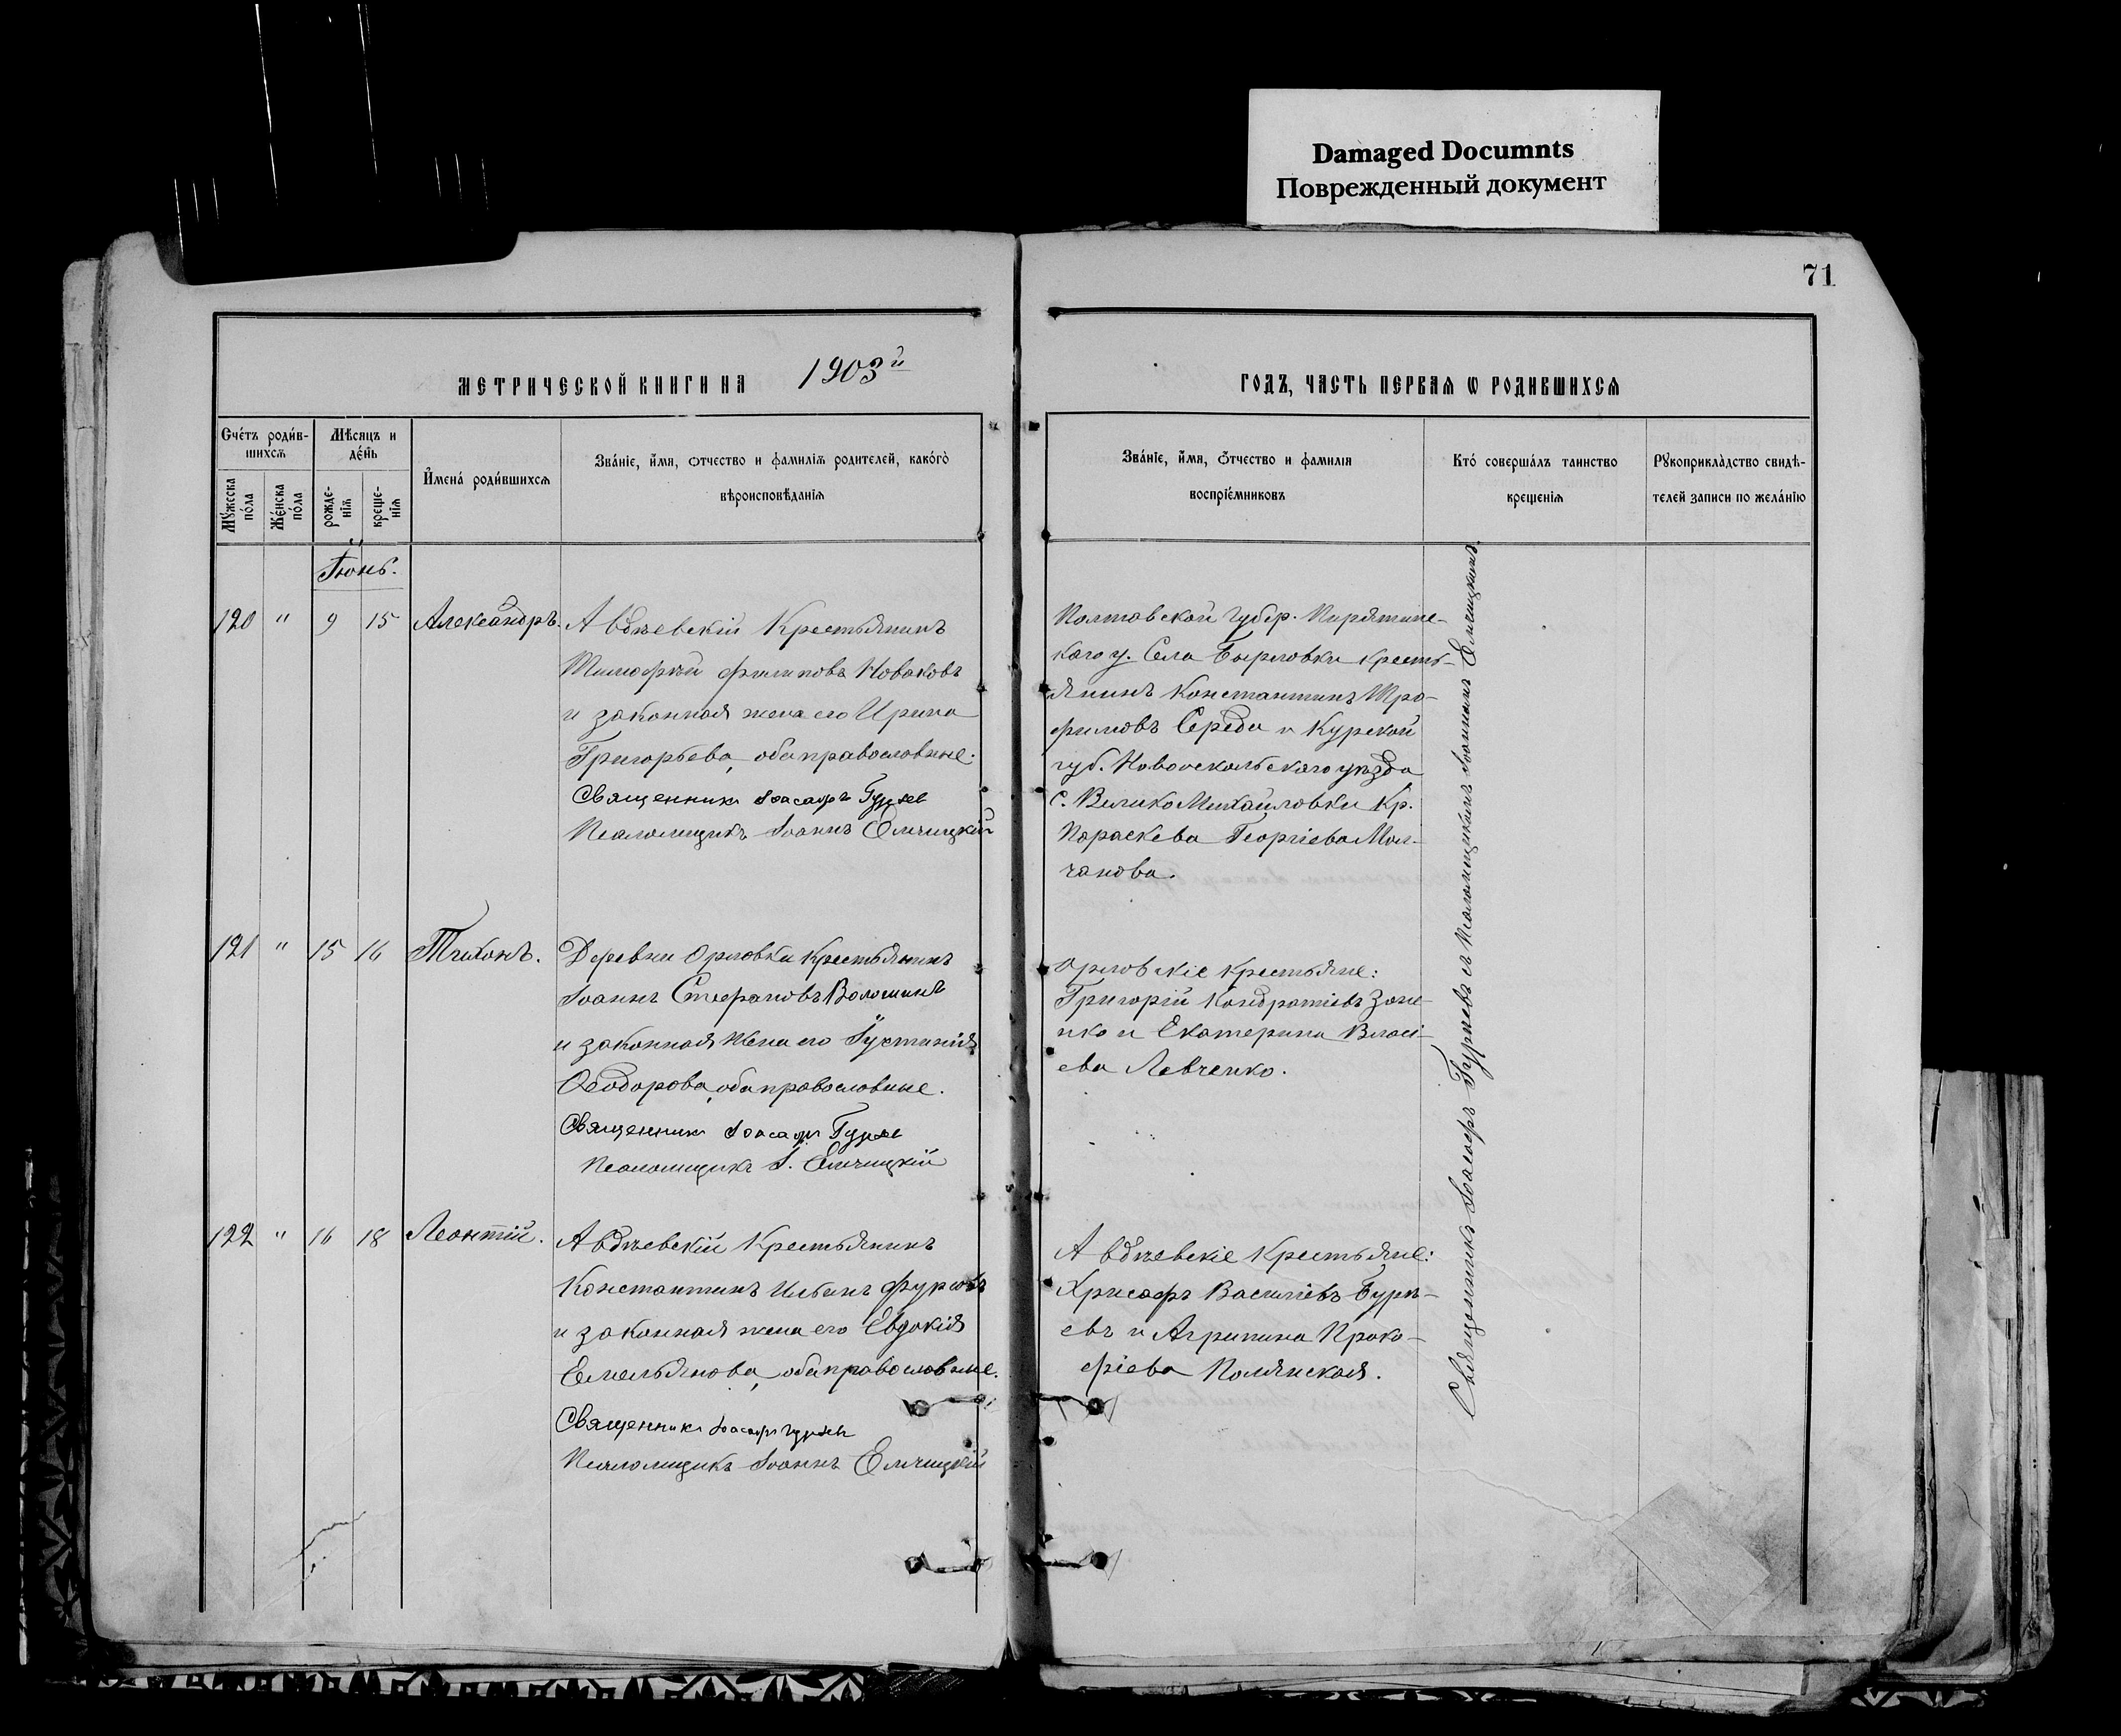 Damaged Documnts
Поврежденный документ
71
МЕТРИЧЕСКОЙ КНИГИ НА 1903й
ГОДЪ, ЧАСТЬ ПЕРВАѦ Ѡ РОДИВШИХСѦ
Сче́тъ роди́в-
шихсѧ
Мѣсяцъ и
де́нь
Му́жеска
по́ла
Же́нска
по́ла
рожде-
нїѧ
креще-
нїѧ
И҆мена̀ роди́вшихсѧ
Зва́нїе, и҆́мѧ, ѻтчество и фамилїѧ родителей, како́гѡ
вѣроисповѣданїѧ
Зва́нїе, и҆́мѧ, ѻтчество и фамилїѧ
воспрїе́мниковъ
Кто́ соверша́лъ таинство
крещенїѧ
Рꙋкоприкла́дство свидѣ-
телей записи по жела́нїю
Іюнь.
120 " 9 15 Александръ.
Авдѣевскій Крестьянинъ
Тимофей Филиповъ Новаковъ
и законная жена его Ирина
Григорьева, оба православные.
Священникъ Іоасафъ Гурѣев
Псаломщикъ Іоаннъ Елчицкій
Полтавской губер. Пирятинс-
каго у. Села Бырловки кресть-
янинъ Константинъ Тро-
фимовъ Середа и Курской
губ. Новооскольскаго уѣзда
С. Велико Михайловки Кр.
Параскева Георгіева Мол-
чанова.
121 " 15 16 Тихонъ.
Деревни Орловки Крестьянинъ
Іоаннъ Стефановъ Волошинъ
и законная жена его Іустинія
Ѳеодорова, оба православные.
Священникъ Іоасафъ Гурѣев
Псаломщикъ І. Елчицкій
Орловскіе крестьяне:
Григорій Кондратіевъ Зане-
нко и Екатерина Власі-
ева Левченко.
122 " 16 18 Леонтій.
Авдѣевскій Крестьянинъ
Константинъ Ильинъ Фурсовъ
и законная жена его Евдокія
Емельянова, оба православные.
Священникъ Іоасафъ Гурѣевъ
Псаломщикъ Іоаннъ Елчицкій
Авдѣевскіе Крестьяне:
Хрисафъ Василіевъ Бурѣ-
евъ и Агрипина Проко-
фіева Полянская.
Священникъ Іоасафъ Гурѣевъ съ Псаломщикомъ Іоанномъ Елчицкимъ.